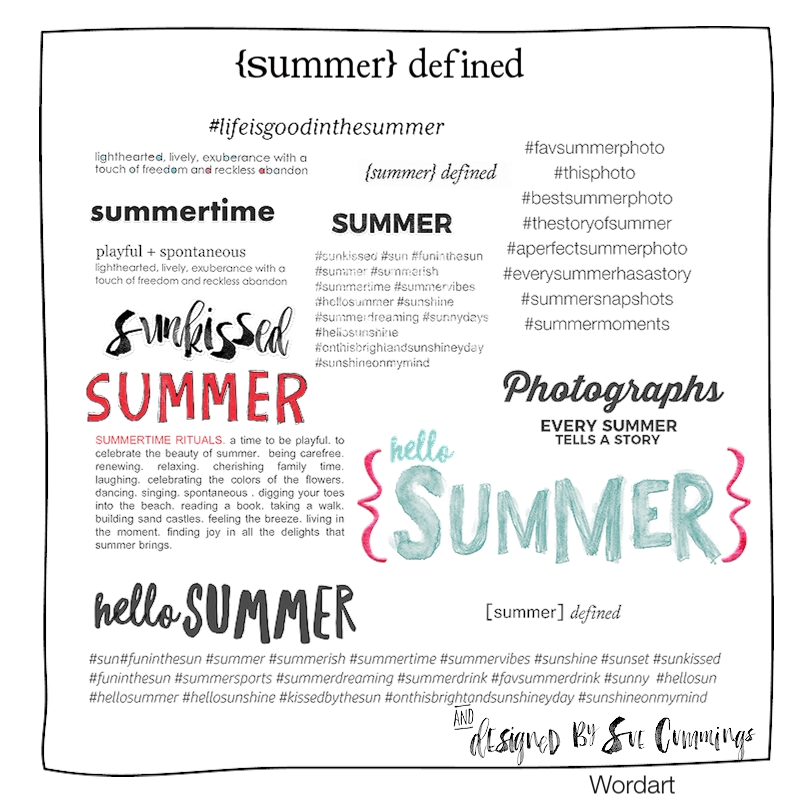 {summer} defined
#lifeisgoodinthesummer
lighthearted, lively, exuberance with a
touch of freedom and reckless abandon
{summer} defined
#favsummerphoto
#thisphoto
#bestsummerphoto
#thestoryofsummer
#aperfectsummerphoto
#everysummerhasastory
#summersnapshots
#summermoments
summertime
SUMMER
playful + spontaneous
lighthearted, lively, exuberance with a
touch of freedom and reckless abandon
#sunkissed #sun #funinthesun
#summer #summerish
#summertime #summervibes
#hellosummer #sunshine
#summerdreaming #sunnydays
#hellosunshine
#onthisbrightandsunshineyday
#sunshineonmymind
sunkissed
SUMMER
Photographs
EVERY SUMMER
TELLS A STORY
SUMMERTIME RITUALS. a time to be playful. to
celebrate the beauty of summer. being carefree.
renewing. relaxing. cherishing family time.
laughing. celebrating the colors of the flowers.
dancing. singing. spontaneous . digging your toes
into the beach. reading a book. taking a walk.
building sand castles. feeling the breeze. living in
the moment. finding joy in all the delights that
summer brings.
hello
{SUMMER}
hello SUMMER
[summer] defined
#sun#funinthesun #summer #summerish #summertime #summervibes #sunshine #sunset #sunkissed
#funinthesun #summersports #summerdreaming #summerdrink #favsummerdrink #sunny #hellosun
#hellosummer #hellosunshine #kissedbythesun #onthisbrightandsunshineyday #sunshineonmymind
AND
designed By Sue Cummings
Wordart